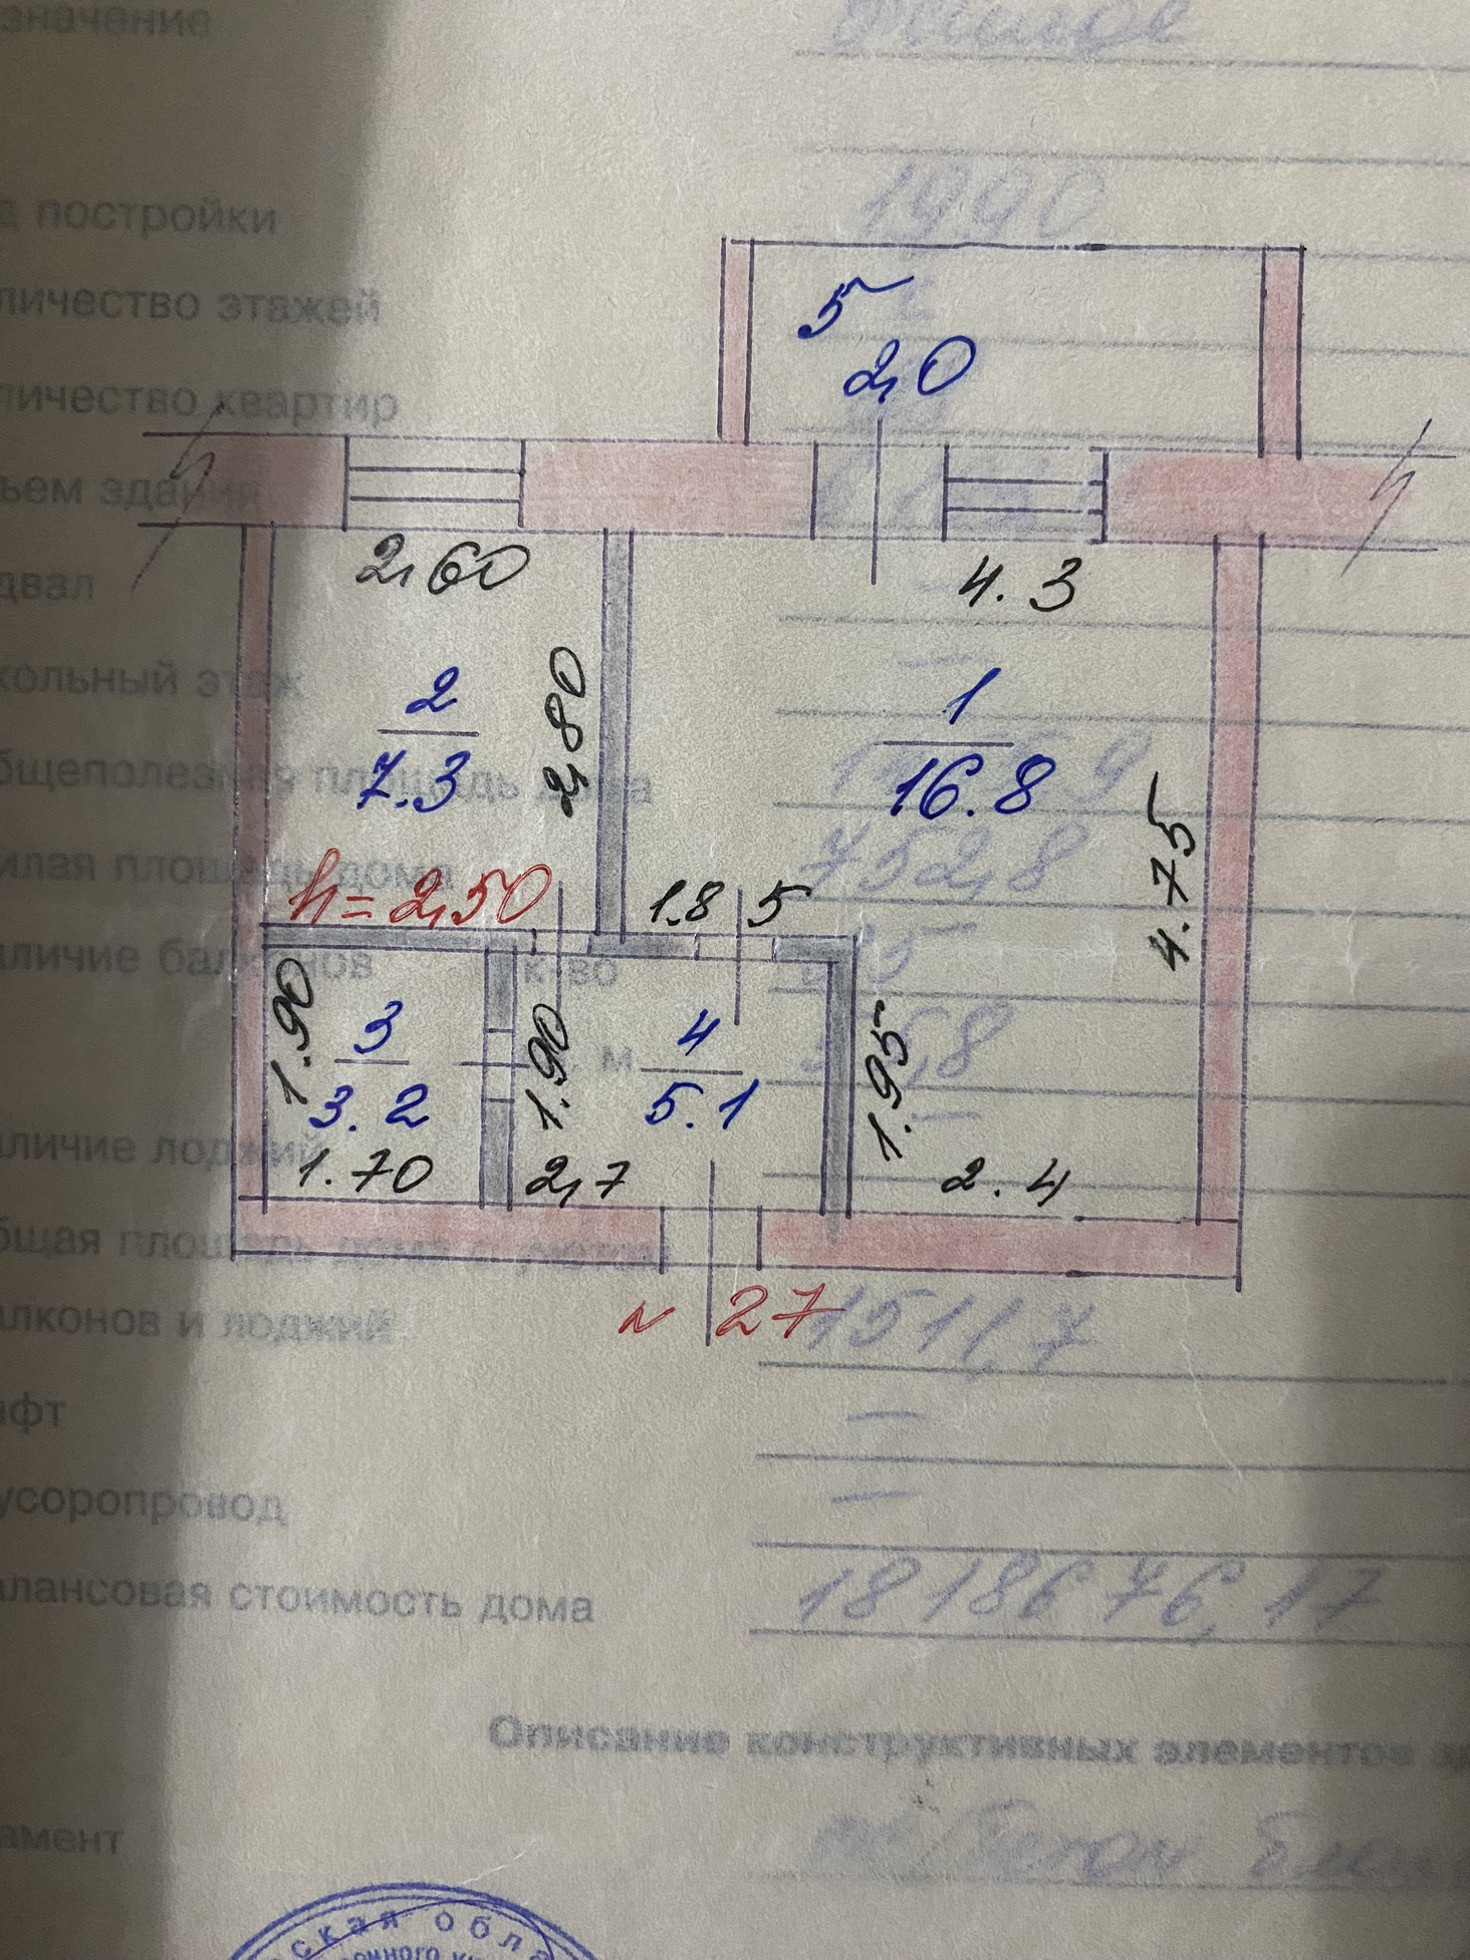 значение
жилое
постройки
1990
личество этажей
5
2,0
личество квартир
ъем здания
2,60
4.3
двал
2
7.3
2,80
1
16.8
4.75
кольный этаж
бщеполезная площадь дома
илая площадь дома
752,8
h=2,50
1.8 5
аличие балконов
к-во
1.90
3
3.2
1.70
1.90
м
4
5.1
2,7
1.95
2.4
аличие лоджий
бщая площадь дома с учетом
алконов и лоджий
1511,7
N 27
ифт
усоропровод
алансовая стоимость дома
1818676,17
Описание конструктивных элементов
амент
ская обла